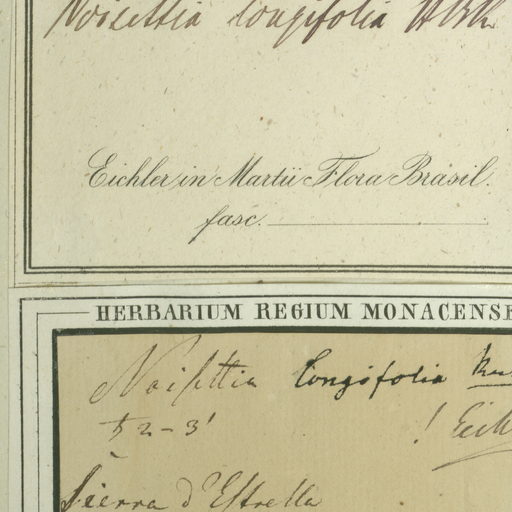 Noisettia longifolia HBK
Eichler in Martii Flora Brasil.
fasc.
HERBARIUM REGIUM MONACENSE
Noisettia longifolia
♄ 2-3'
! Eich
Sierra d'Estrella